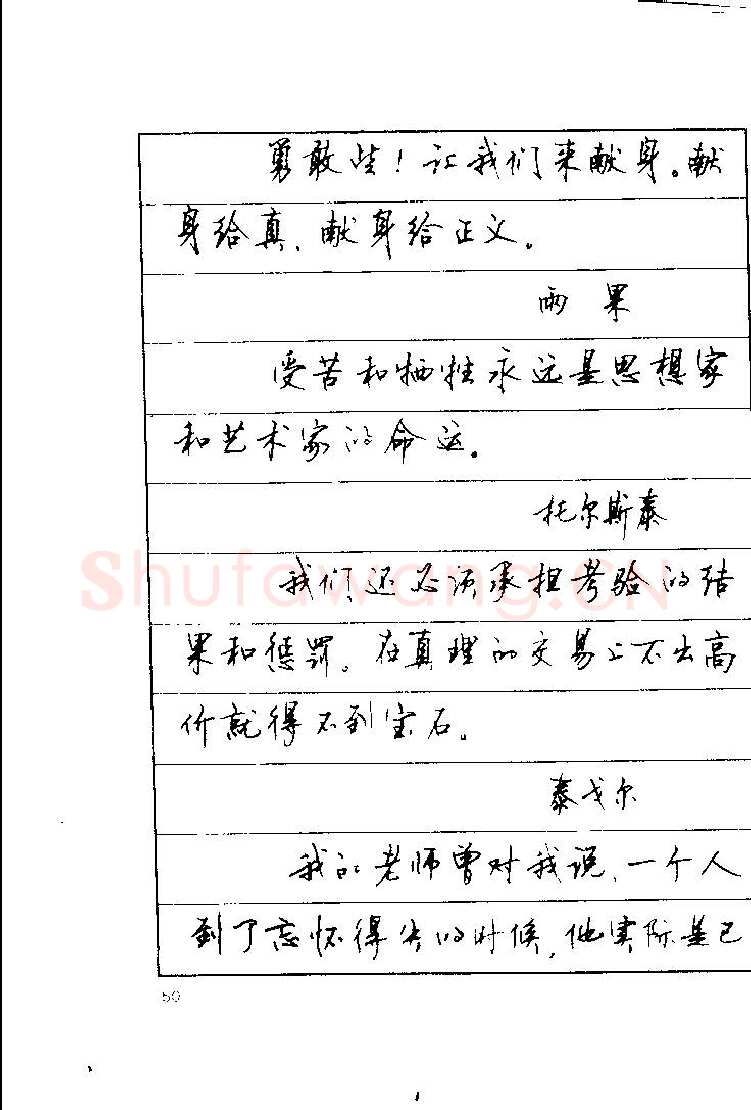 勇敢些！让我们来献身。献
身给真、献身给正义。
雨果
受苦和牺牲永远是思想家
和艺术家的命运。
托尔斯泰
Shufawang.CN
我们还必须承担考验的结
果和惩罚。在真理的交易上不出高
价就得不到宝石。
泰戈尔
我的老师曾对我说，一个人
到了忘怀得失的时候，他实际是已
50